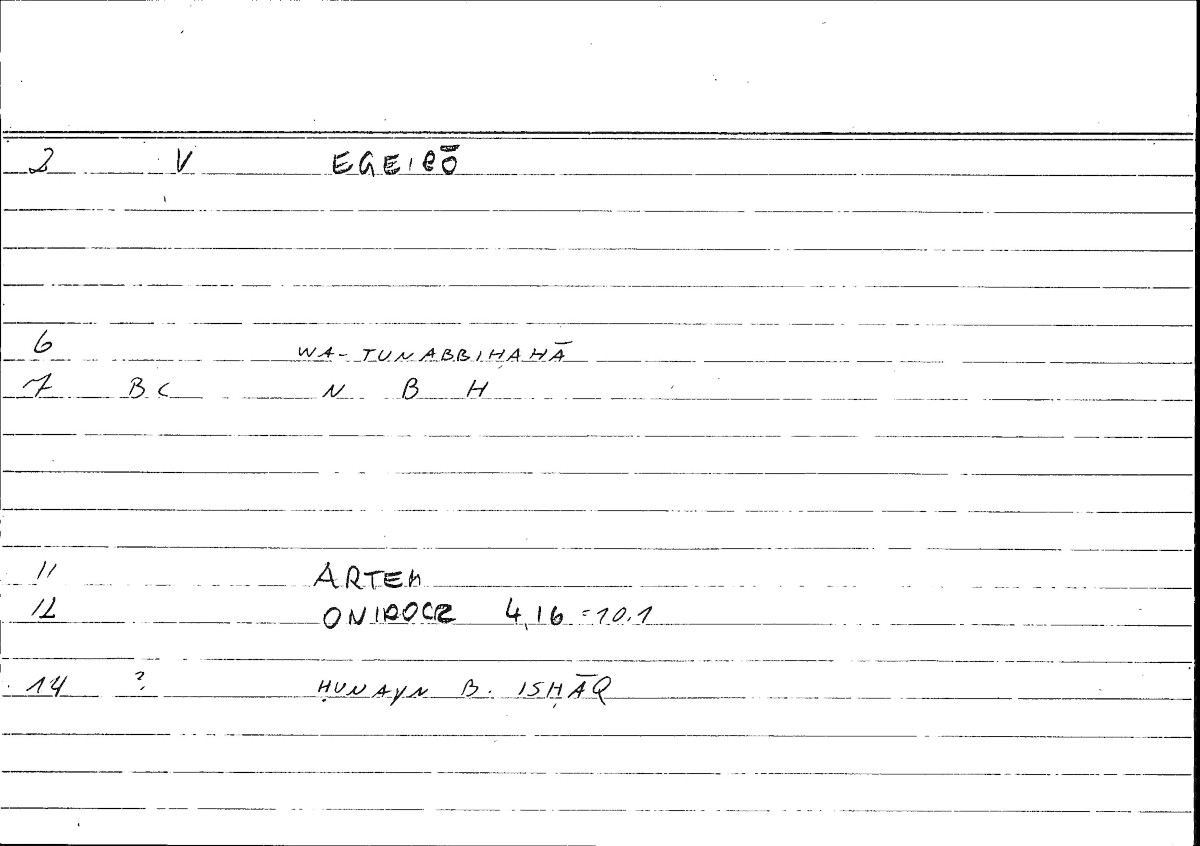 2 V EGEIRŌ
6 WA-TUNABBIHAHĀ
7 BC N B H
11 ARTEM
12 ONIROCR 4,16 =10.1
14 ? ḤUNAYN B. ISḤĀQ